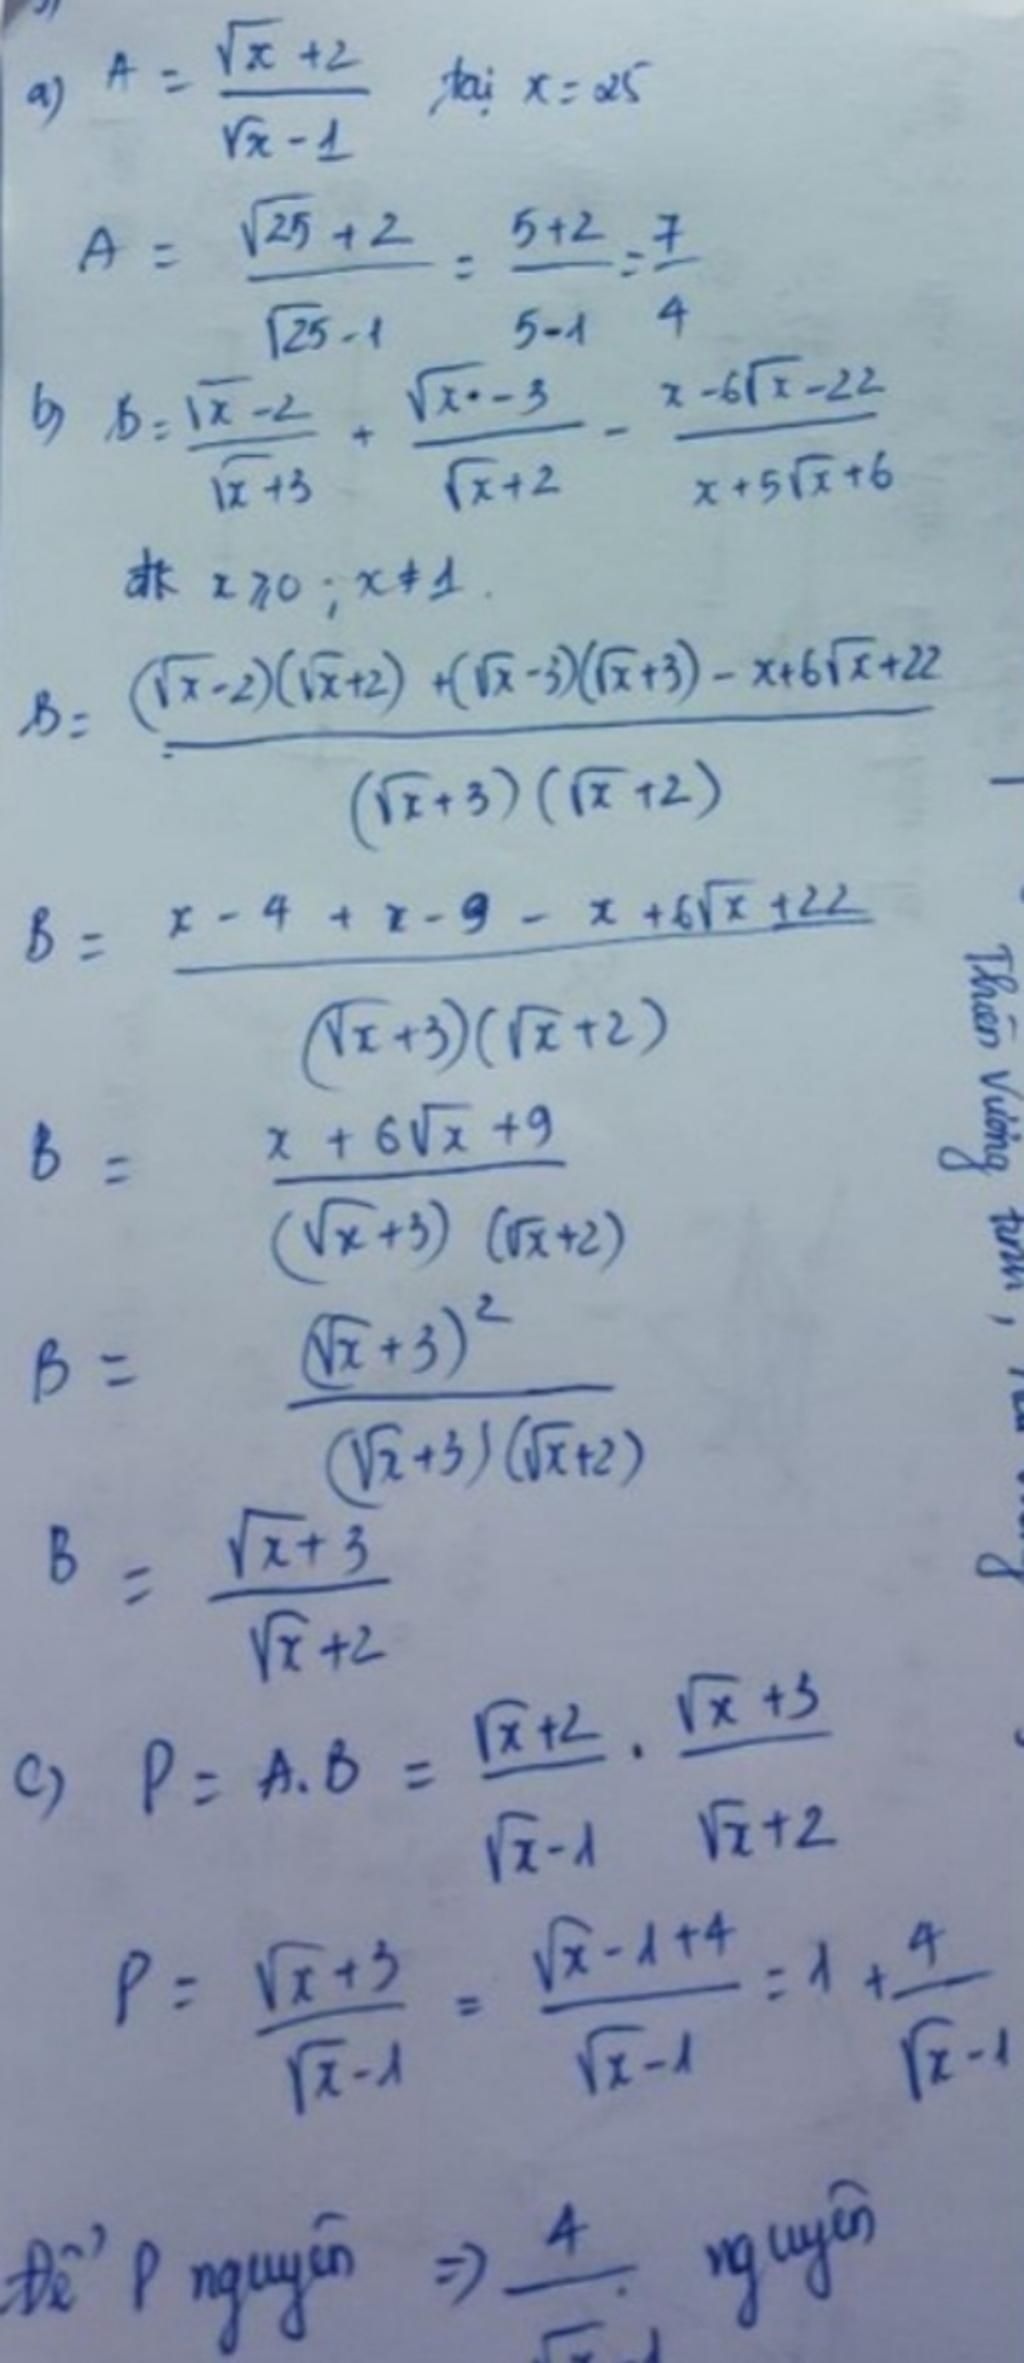 a) A = (√x + 2)/(√x - 1) tại x = 25
A = (√25 + 2)/(√25 - 1) = (5+2)/(5-1) = 7/4
b) B = (√x - 2)/(√x + 3) + (√x - 3)/(√x + 2) - (x - 6√x - 22)/(x + 5√x + 6)
đk x ≥ 0 ; x ≠ 1.
B = ((√x - 2)(√x + 2) + (√x - 3)(√x + 3) - x + 6√x + 22)/((√x + 3)(√x + 2))
B = (x - 4 + x - 9 - x + 6√x + 22)/((√x + 3)(√x + 2))
B = (x + 6√x + 9)/((√x + 3)(√x + 2))
B = (√x + 3)²/((√x + 3)(√x + 2))
B = (√x + 3)/(√x + 2)
c) P = A.B = (√x + 2)/(√x - 1) . (√x + 3)/(√x + 2)
P = (√x + 3)/(√x - 1) = (√x - 1 + 4)/(√x - 1) = 1 + 4/(√x - 1)
Để P nguyên => 4/(√x - 1) nguyên